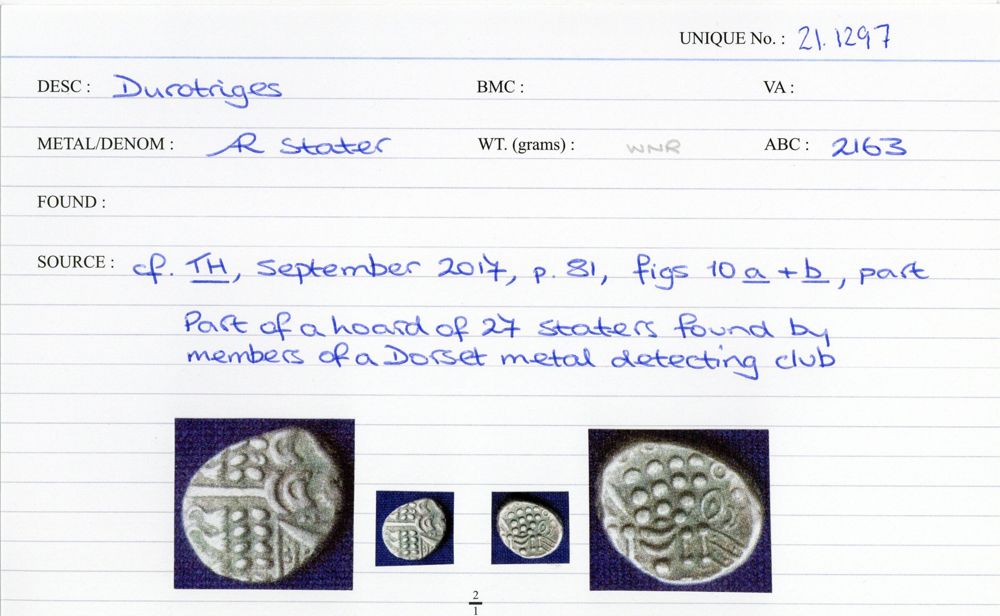 UNIQUE No. : 21.1297
DESC : Durotriges BMC : VA :
METAL/DENOM : AR Stater WT. (grams) : WNR ABC : 2163
FOUND :
SOURCE : cf. TH, September 2017, p. 81, figs 10 a + b, part
Part of a hoard of 27 staters found by
members of a Dorset metal detecting club
2
1